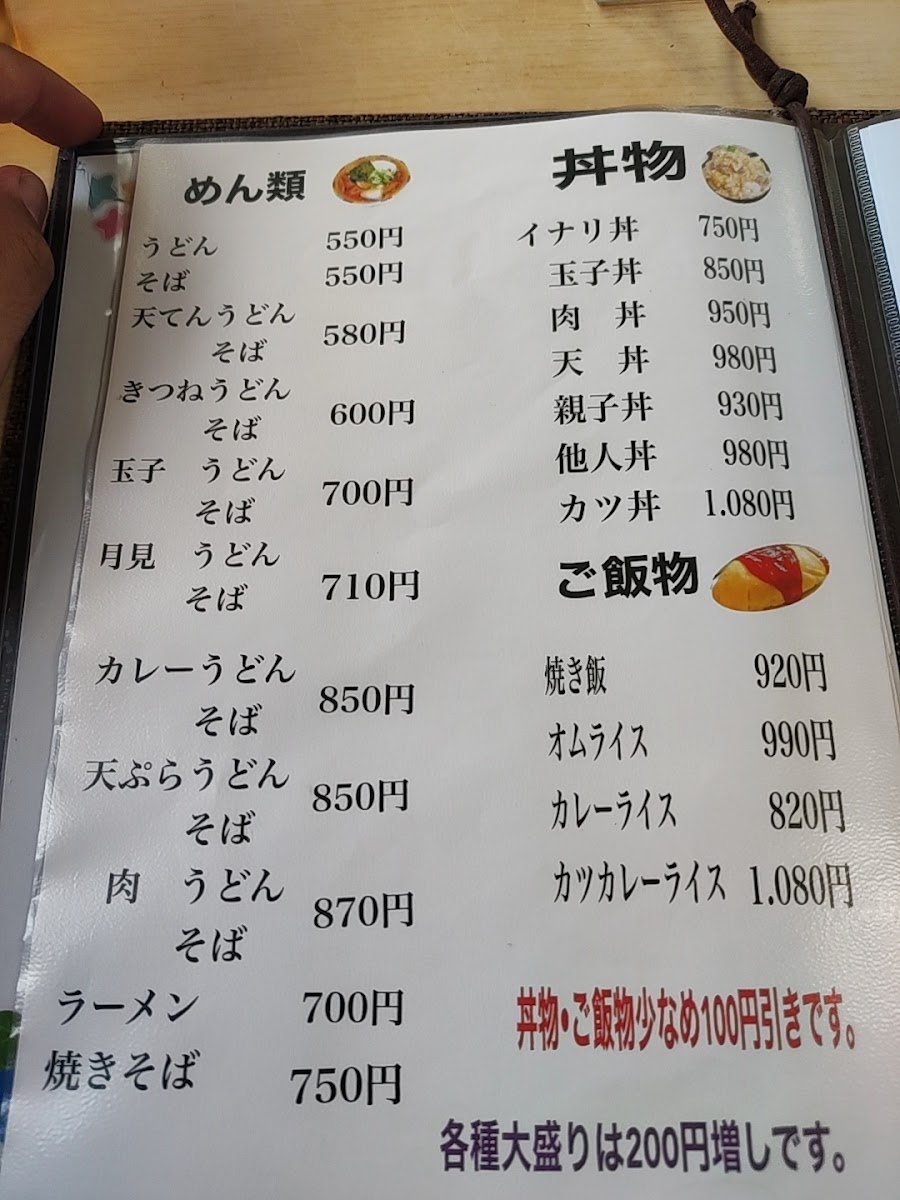 めん類
うどん 550円
そば 550円
天てんうどん
そば 580円
きつねうどん
そば 600円
玉子 うどん
そば 700円
月見 うどん
そば 710円
カレーうどん
そば 850円
天ぷらうどん
そば 850円
肉 うどん
そば 870円
ラーメン 700円
焼きそば 750円
丼物
イナリ丼 750円
玉子丼 850円
肉 丼 950円
天 丼 980円
親子丼 930円
他人丼 980円
カツ丼 1.080円
ご飯物
焼き飯 920円
オムライス 990円
カレーライス 820円
カツカレーライス 1.080円
丼物・ご飯物少なめ100円引きです。
各種大盛りは200円増しです。